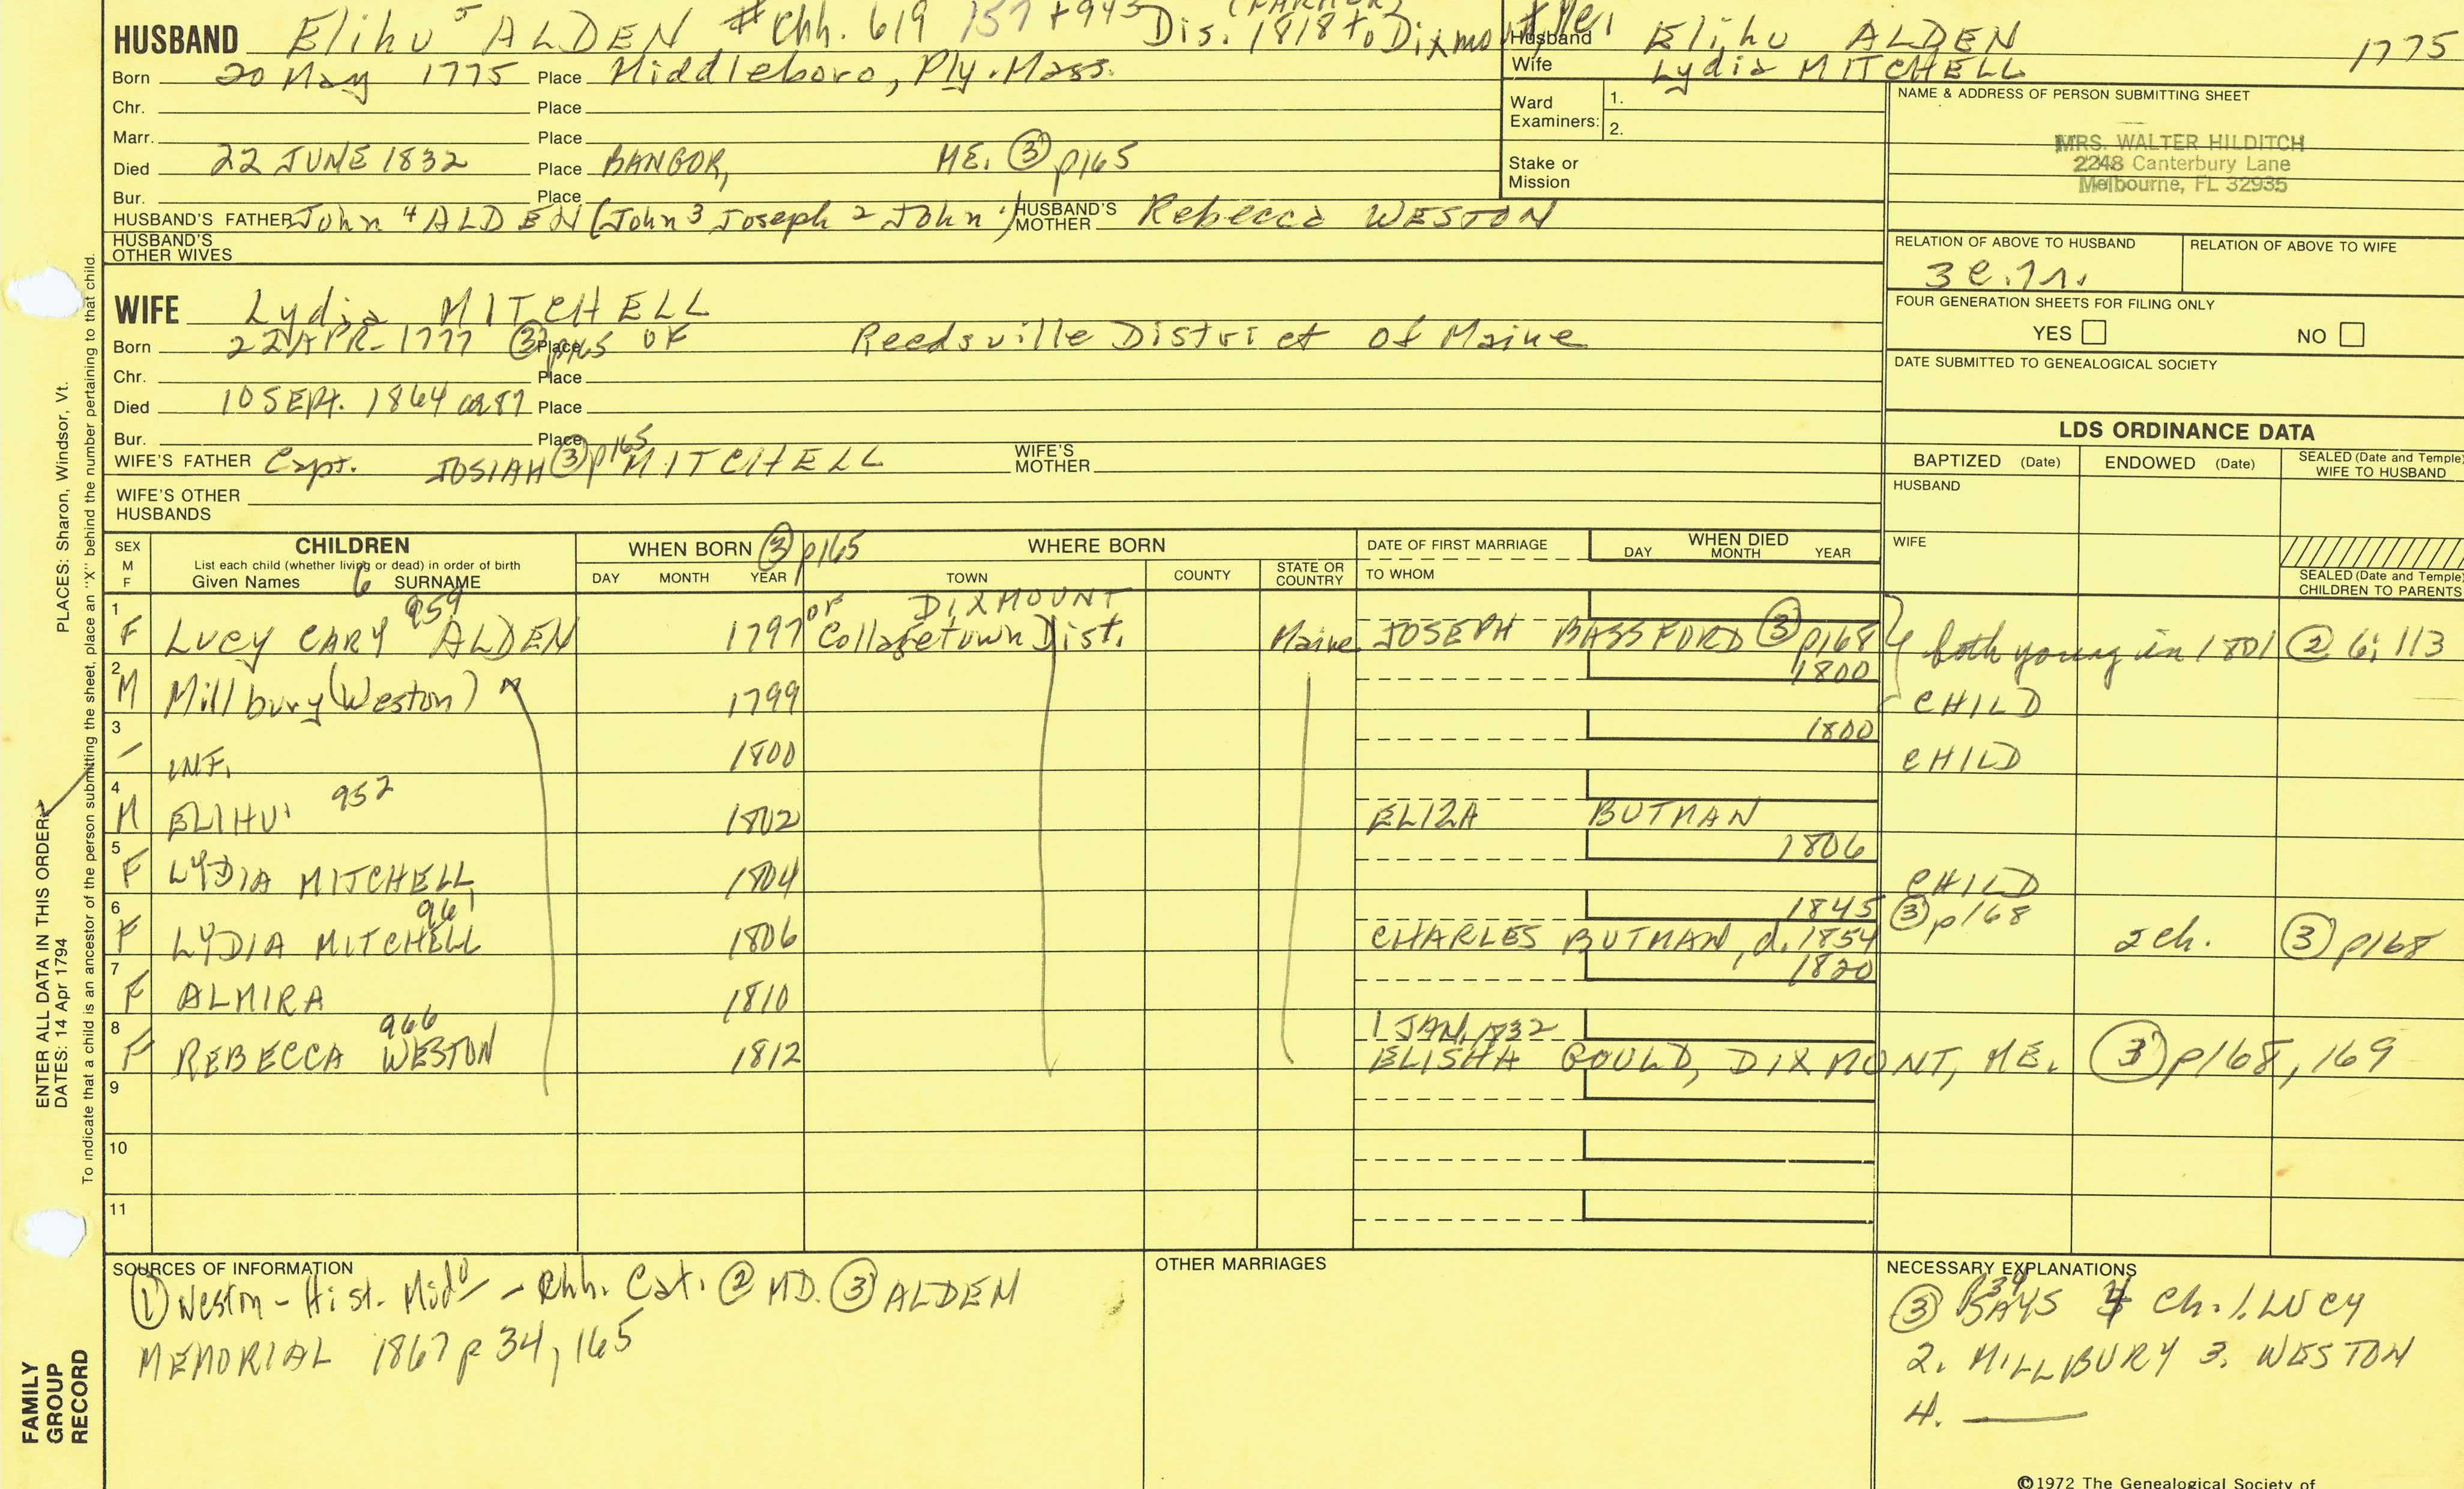 HUSBAND Elihu 5 ALDEN # Chh. 619 157 + 945 (FARMER) Dis. 1818 to Dixmont, Me.
Husband Elihu ALDEN 1775
Wife Lydia MITCHELL
Born 20 May 1775 Place Middleboro, Ply. Mass.
Chr. Place
Marr. Place
Died 22 JUNE 1832 Place BANGOR, ME. ③ p165
Bur. Place
Ward Examiners: 1. 2.
Stake or Mission
NAME & ADDRESS OF PERSON SUBMITTING SHEET
MRS. WALTER HILDITCH
2248 Canterbury Lane
Melbourne, FL 32935
HUSBAND'S FATHER John 4 ALDEN (John 3 Joseph 2 John 1) HUSBAND'S MOTHER Rebecca WESTON
HUSBAND'S OTHER WIVES
RELATION OF ABOVE TO HUSBAND RELATION OF ABOVE TO WIFE
FOUR GENERATION SHEETS FOR FILING ONLY
YES NO
DATE SUBMITTED TO GENEALOGICAL SOCIETY
WIFE Lydia MITCHELL
Born 22 APR. 1777 ③ p165 Place OF Reedsville District of Maine
Chr. Place
Died 10 SEPT. 1864 ae 87 Place
Bur. Place
WIFE'S FATHER Capt. JOSIAH ③ p165 MITCHELL WIFE'S MOTHER
WIFE'S OTHER HUSBANDS
LDS ORDINANCE DATA
BAPTIZED (Date) ENDOWED (Date) SEALED (Date and Temple) WIFE TO HUSBAND
HUSBAND
WIFE
SEALED (Date and Temple) CHILDREN TO PARENTS
SEX M F
CHILDREN
List each child (whether living or dead) in order of birth
Given Names 6 SURNAME
WHEN BORN ③ p165
DAY MONTH YEAR
WHERE BORN
TOWN COUNTY STATE OR COUNTRY
DATE OF FIRST MARRIAGE
TO WHOM
WHEN DIED
DAY MONTH YEAR
1 F LUCY CARY 959 ALDEN 1797 of DIXMOUNT Collagetown Dist. Maine JOSEPH BASSFORD ③ p168 both young in 1801 ② 6; 113
2 M Millbury (Weston) 1799 1800 CHILD
3 - INF. 1800 1800 CHILD
4 M ELIHU 952 1802 ELIZA BUTMAN
5 F LYDIA MITCHELL 1804 1806 CHILD
6 F LYDIA MITCHELL 961 1806 1845 CHARLES BUTMAN, d. 1854 ③ p168 2 ch. ③ p168
7 F ALMIRA 1810 1820
8 F REBECCA WESTON 966 1812 1 JAN. 1832 ELISHA GOULD, DIXMONT, ME. ③ p168, 169
9
10
11
SOURCES OF INFORMATION
① Weston - Hist. Mid - Chh. Cat. ② MD. ③ ALDEN
MEMORIAL 1867 p 34, 165
OTHER MARRIAGES
NECESSARY EXPLANATIONS
③ p34 SAYS 4 Ch. 1. LUCY
2. MILLBURY 3. WESTON
4. ——
©1972 The Genealogical Society of
PLACES: Sharon, Windsor, Vt.
ENTER ALL DATA IN THIS ORDER:
DATES: 14 Apr 1794
To indicate that a child is an ancestor of the person submitting the sheet, place an "X" behind the number pertaining to that child.
FAMILY
GROUP
RECORD